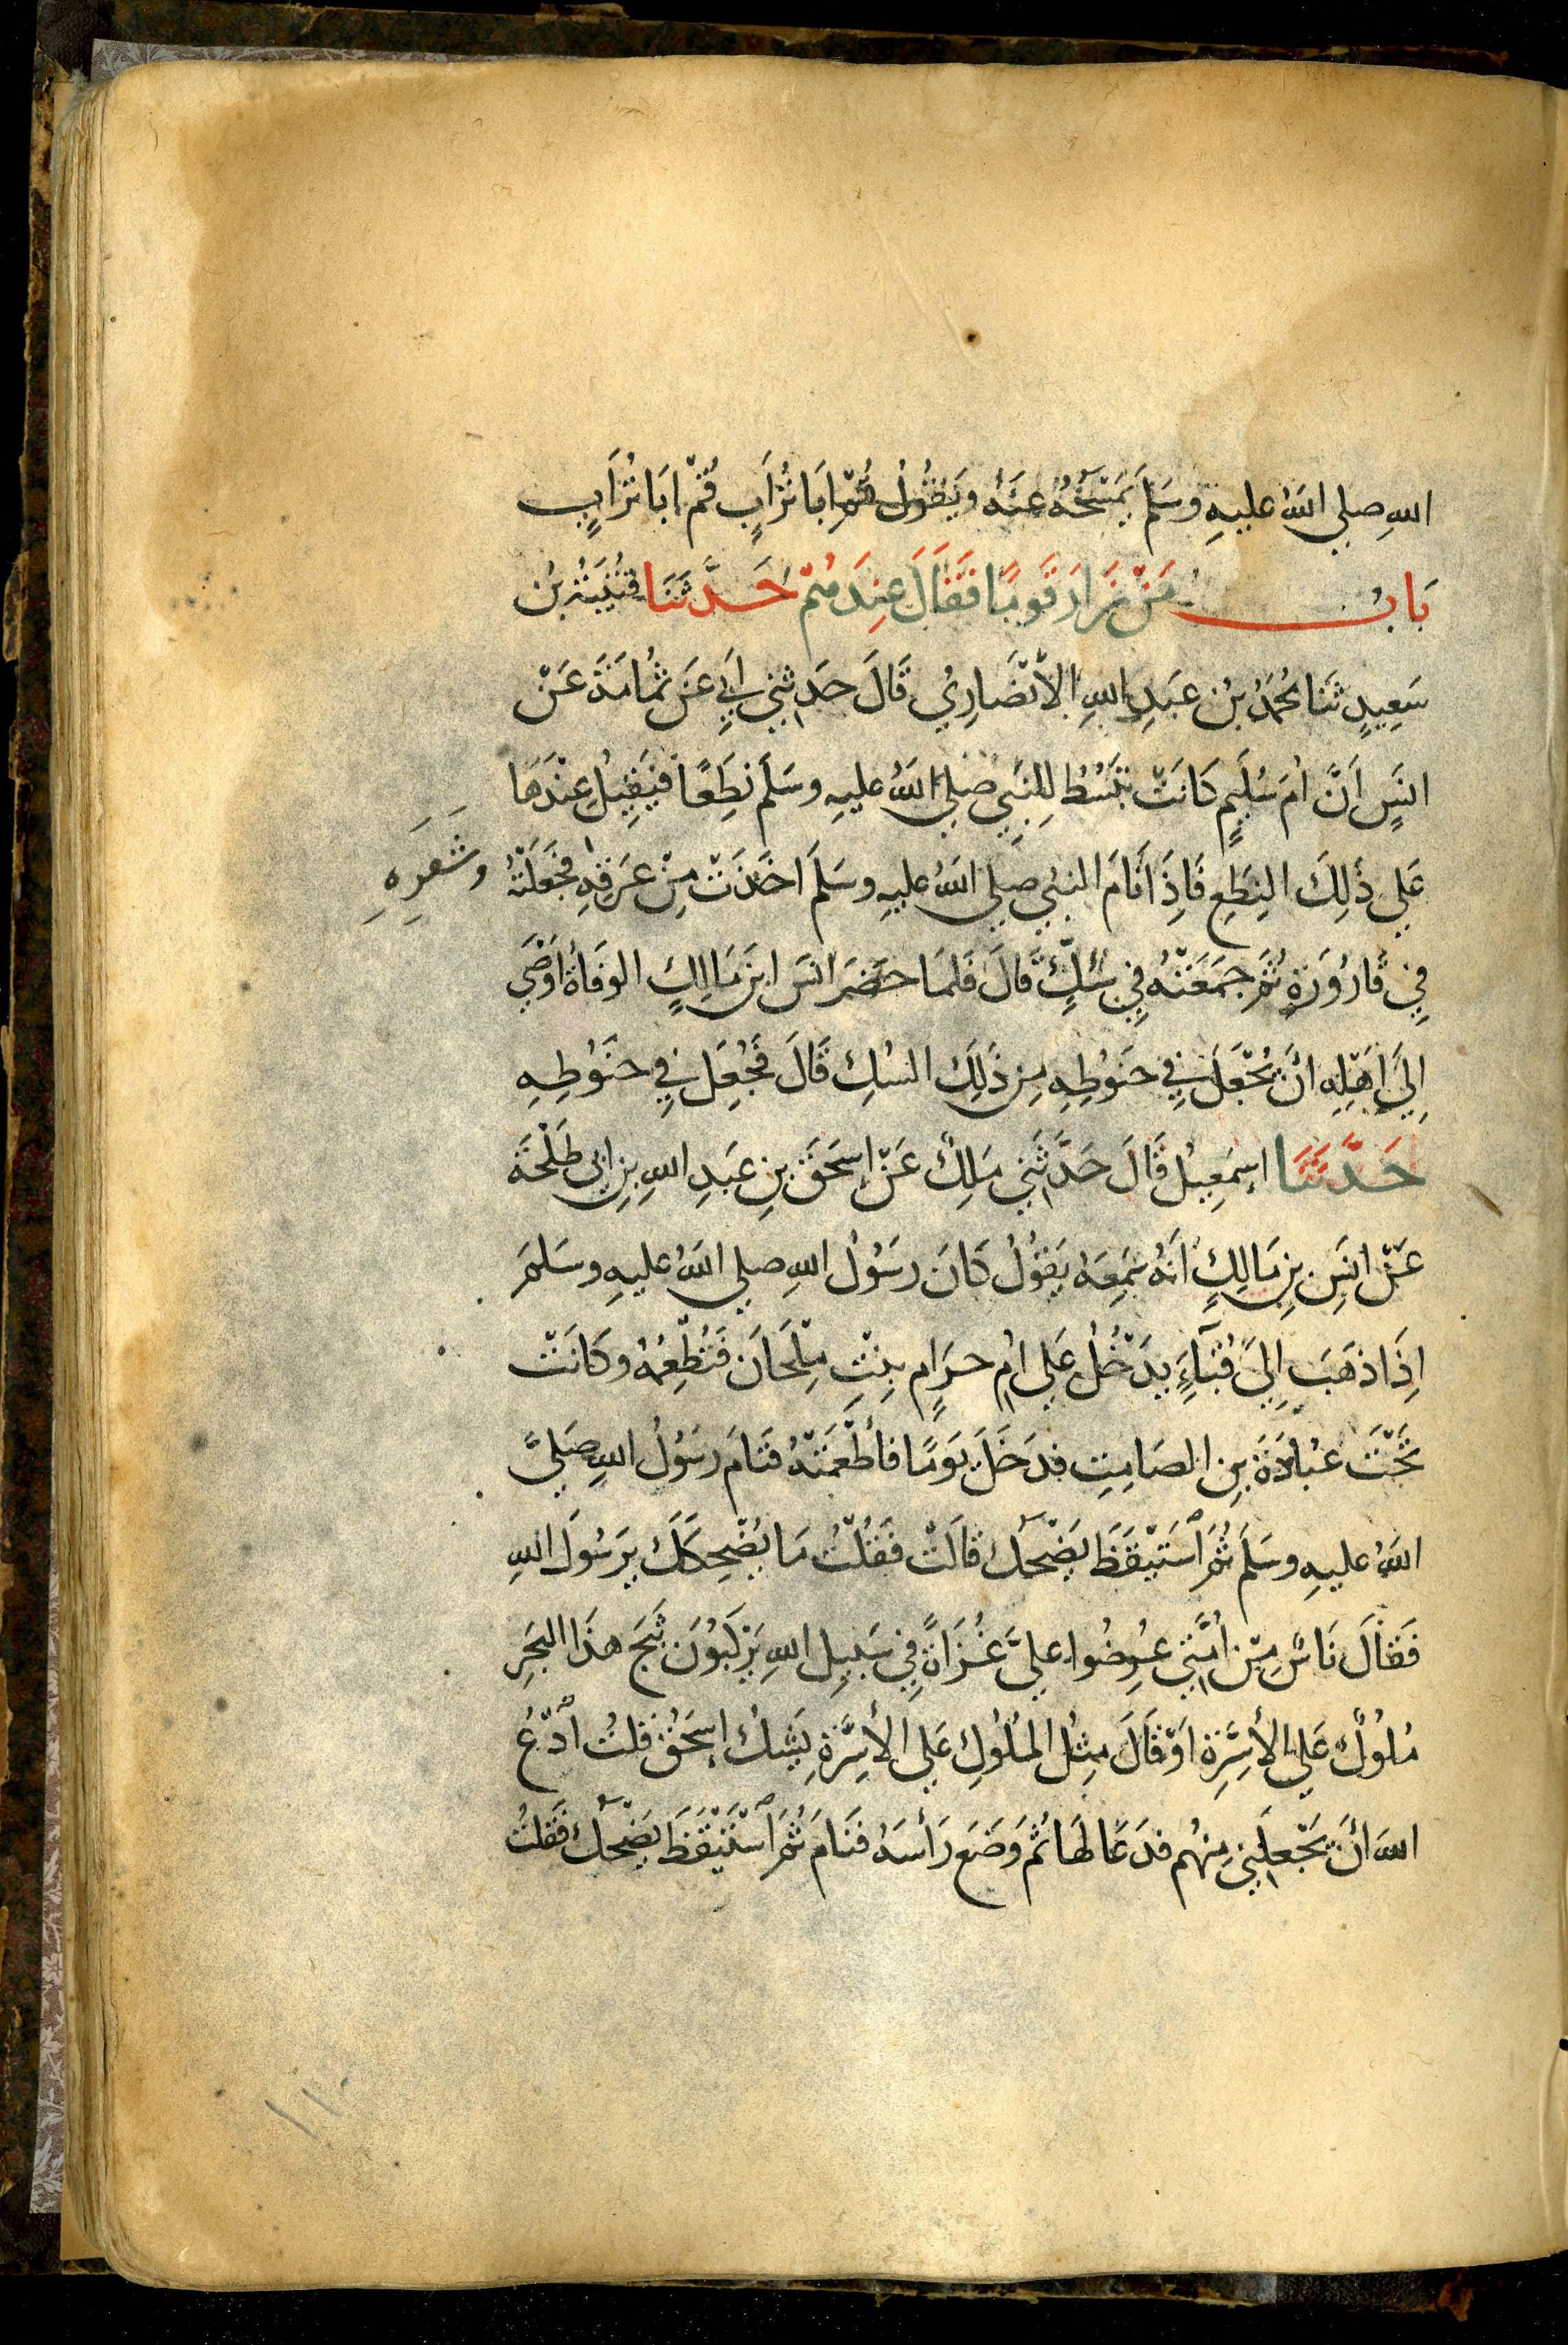 اللهِ صلي اللهُ عليهِ وسَلَّمَ يَمْسَحُهُ عَنْهُ وَيَقُولُ قُمْ ابَا تُرَابٍ قُمْ ابَا تُرَابٍ
بَابُ مَنْ زَارَ قَومًا فَقَالَ عِندَهُمْ حَدَّثَنَا قُتَيْبَةُ بْنُ
سَعِيدٍ ثَنَا مُحَمَّدُ بْنُ عَبدِ اللهِ الأنْصَارِيُ قَالَ حَدثني أَبِي عَنْ ثُمَامَةَ عَنْ
انَسٍ أَنَّ أُمَ سُلَيمٍ كَانَتْ تَبْسُطُ لِلنَبِي صلي اللهُ عليهِ وسَلَّمَ نِطَعًا فَيَقِيلُ عِنْدَهَا
عَلي ذَلِكَ النِطَعِ فَاِذَا نَامَ النبيُ صلي اللهُ عليهِ وسَلَّمَ اخَذَتْ مِنْ عَرَقِهِ فَجَعَلَتْهُ
وشَعَرِهِ
فِي قَارُورَةٍ ثُمَّ جَمَعَتْهُ فِي سُكٍّ قَالَ فَلمَا حَضَرَ انَسَ ابنَ مَالِكٍ الوفَاةُ اَوْصَي
اِلَيَّ اَهْلِهِ انْ يُجْعَلَ فِي حَنُوطِهِ مِن ذَلِكَ السُكِ قَالَ فَجُعِلَ فِي حنُوطِهِ
حَدَّثَنَا اِسمَعِيلُ قَالَ حَدَّثَنِي مَلِكٌ عَنْ اِسحَقَ بنِ عَبدِ اللهِ بنِ ابِي طَلْحَةَ
عَنْ انَسِ بنِ مَالِكٍ اَنَهُ سَمِعَهُ يَقُولُ كَانَ رسَوُلُ اللهِ صلي اللهُ عليهِ وسَلَّمَ
اِذَا ذَهَبَ اِلَيَّ قُبَآءٍ يدَخُلُ عَلي امِ حرَامٍ بِنْتِ مِلْحَانَ فَتُطْعِمُهُ وكَانَتْ
تَحْتَ عُبَادَةَ بنِ الصَامِتِ فدَخَلَ يَومًا فأطْعَمَتْهُ فنَامَ رسُولُ اللهِ صَلَيَّ
اللهُ عليهِ وسَلَّمَ ثُمَّ اسْتَيْقَظَ يَضْحَكُ قالَتْ فَقُلْتُ مَا يُضْحِكُكَ يرَسُولَ اللهِ
فَقَالَ نَاسٌ مِنْ امَّتي عُرِضُوا عليَّ غُزَاةً فِي سَبيلِ اللهِ يَركَبُونَ ثَبَجَ هذَا البَحرِ
مُلوُكٌ عَلي الأسِرَّةِ اَوْ قَالَ مِثلُ المُلُوكِ عَلي الأسِرَّةِ يَشُكُ اِسحَقُ قلتُ ادْعُ
اللهَ انْ يَجْعَلَنِي مِنهُم فدَعَا لهَا ثُمَّ وَضَعَ رَأسَهُ فنَامَ ثُمَّ اسْتَيْقَظَ يَضْحَكُ فَقلتُ